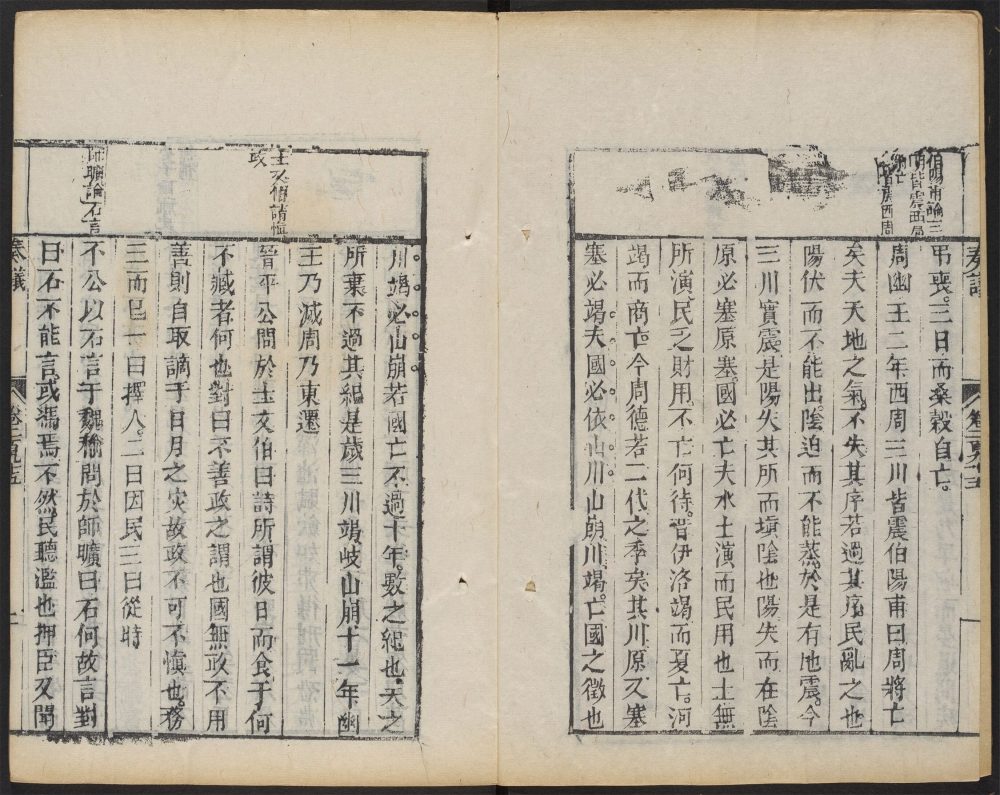 弔喪三日而桑穀自亡
周幽王二年西周三川皆震伯陽甫曰周將亡
矣夫天地之氣不失其序若過其序民亂之也
陽伏而不能出陰迫而不能蒸於是有地震今
三川實震是陽失其所而塡陰也陽失而在陰
原必塞原塞國必亡夫水土演而民用也土無
所演民乏財用不亡何待昔伊洛竭而夏亡河
竭而商亡今周德若二代之季矣其川原又塞
塞必竭夫國必依山川山崩川竭亡國之徵也
川竭必山崩若國亡不過十年數之紀也天之
所棄不過其紀是歲三川竭岐山崩十一年幽
王乃滅周乃東遷
晉平公問於士文伯曰詩所謂彼日而食于何
不臧者何也對曰不善政之謂也國無政不用
善則自取謫于日月之灾故政不可不慎也務
三而已一曰擇人二曰因民三曰從時
平公以石言于魏榆問於師曠曰石何故言對
曰石不能言或馮焉不然民聽濫也抑臣又聞
伯陽甫論三
川皆震西周
士文伯請慎
政
師曠論石言
奏議